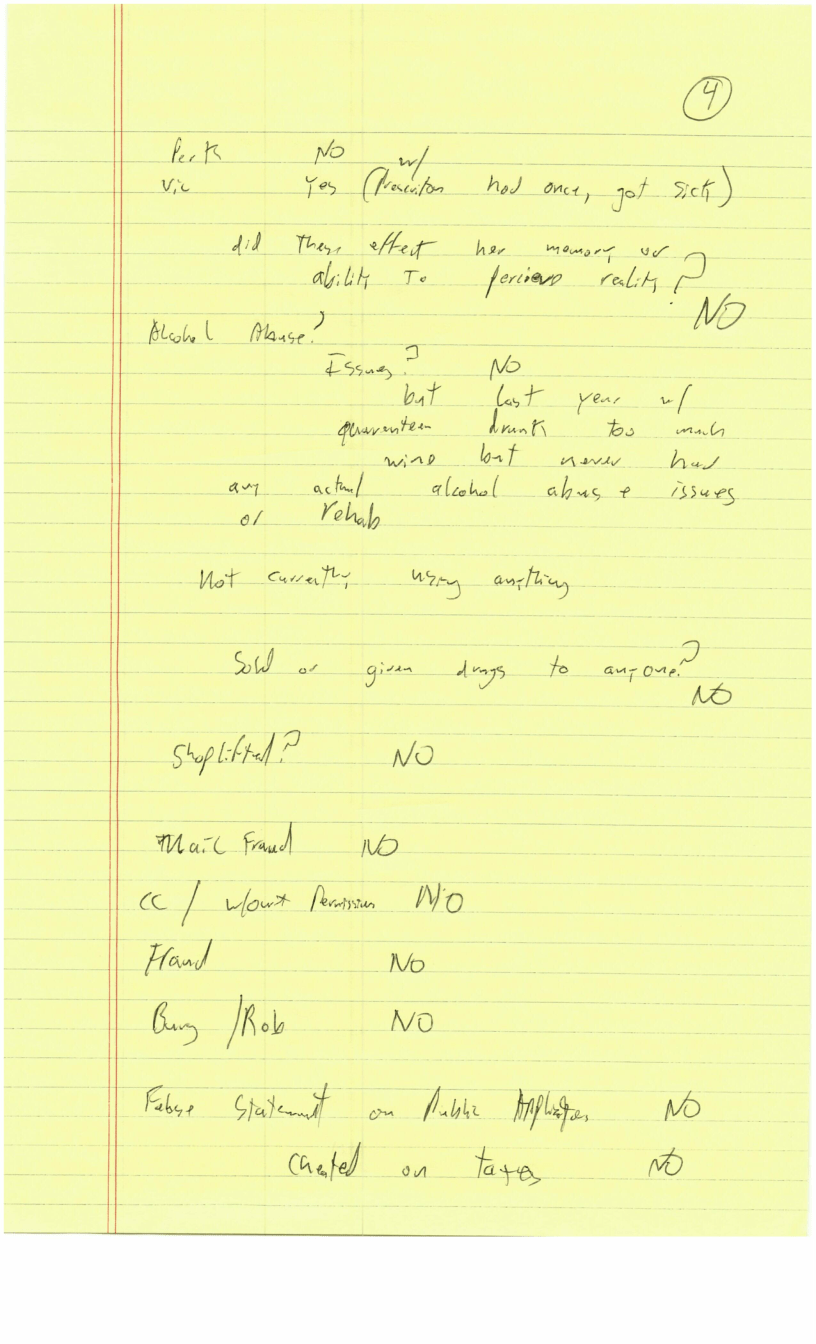 4
Perk NO
w/
Vic Yes ( had once, got sick)
did these effect her memory or
ability To reality?
NO
Alcohol Abuse?
Issues? NO
but last year w/
quarenteen drunk too much
wine but never had
any actual alcohol abuse issues
or rehab
Not currently using anything
Sold or given drugs to anyone?
NO
Shoplifted? NO
Mail Fraud NO
CC / w/out Permission NO
Fraud NO
Burg /Rob NO
Statement on Public NO
Cheated on taxes NO